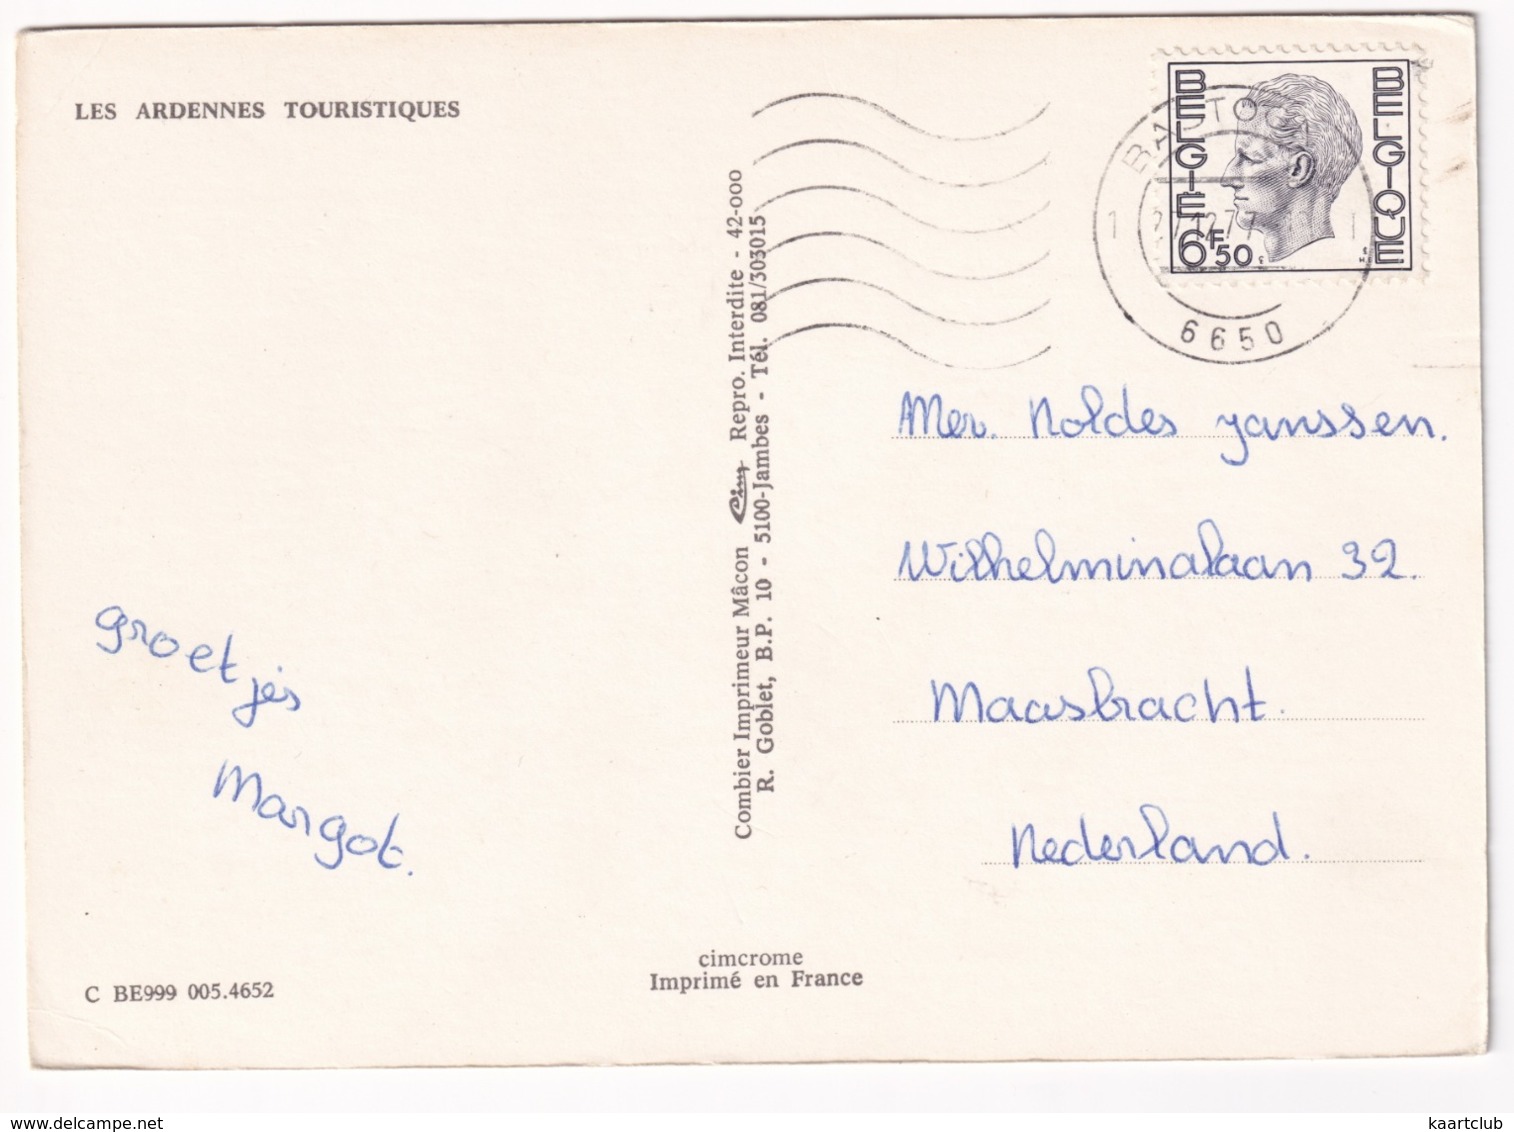 LES ARDENNES TOURISTIQUES
BELGIE
BELGIQUE
6F50
1 27.12.77 1
6650
Combier Imprimeur Mâcon Cim Repro. Interdite - 42-000
R. Goblet, B.P. 10 - 5100-Jambes - Tél. 081/303015
Mev. Noldes Janssen.
Wilhelminalaan 32.
Maasbracht.
Nederland.
groetjes
Margot.
cimcrome
Imprimé en France
C BE999 005.4652
delcampe.net
kaartclub